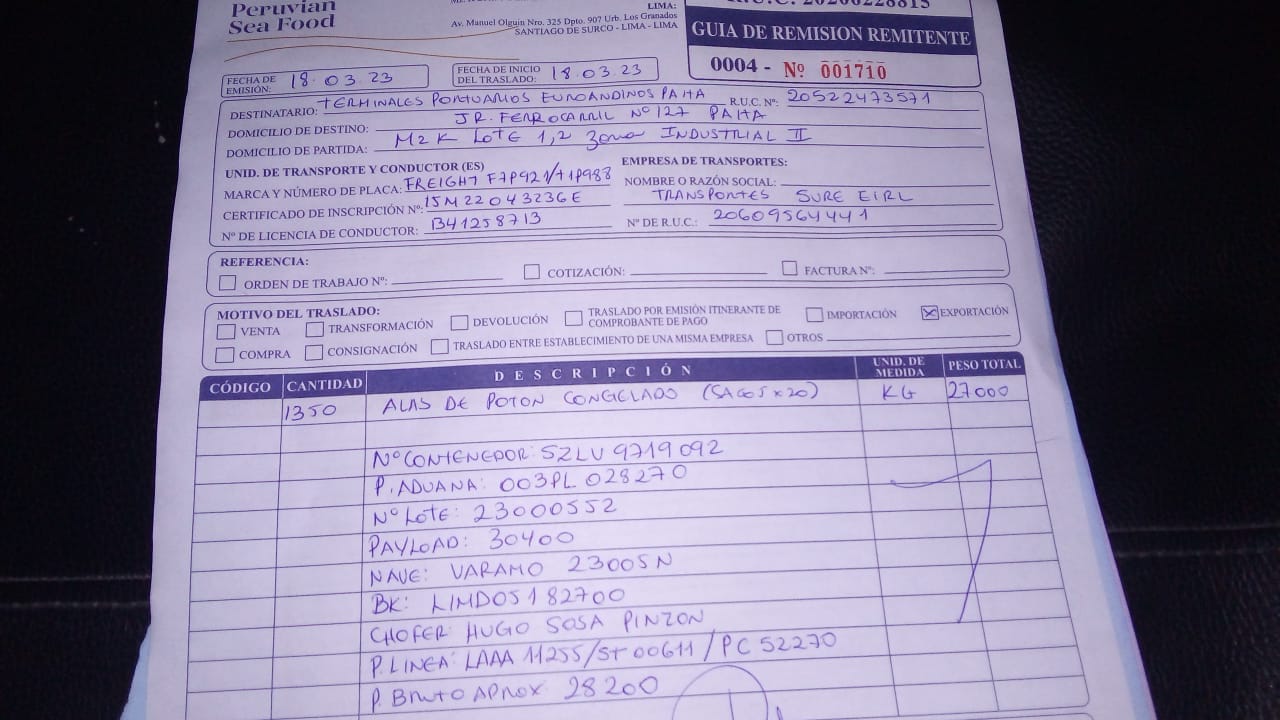 Peruvian
Sea Food
LIMA:
Av. Manuel Olguin Nro. 325 Dpto. 907 Urb. Los Granados
SANTIAGO DE SURCO - LIMA - LIMA
GUIA DE REMISION REMITENTE
0004 - Nº 001710
FECHA DE EMISIÓN: 18.03.23
FECHA DE INICIO DEL TRASLADO: 18.03.23
DESTINATARIO: TERMINALES PORTUARIOS EUROANDINOS PAITA R.U.C. Nº: 20522473571
DOMICILIO DE DESTINO: JR. FERROCARRIL Nº 127 PAITA
DOMICILIO DE PARTIDA: MZ K LOTE 1,2 Zona INDUSTRIAL II
UNID. DE TRANSPORTE Y CONDUCTOR (ES)
MARCA Y NÚMERO DE PLACA: FREIGHT F7P921/T1P988
CERTIFICADO DE INSCRIPCIÓN Nº: 15M22043236E
Nº DE LICENCIA DE CONDUCTOR: B41258713
EMPRESA DE TRANSPORTES:
NOMBRE O RAZÓN SOCIAL:
TRANSPORTES SURE EIRL
Nº DE R.U.C.: 20609564441
REFERENCIA:
ORDEN DE TRABAJO Nº: COTIZACIÓN: FACTURA Nº:
MOTIVO DEL TRASLADO:
VENTA TRANSFORMACIÓN DEVOLUCIÓN TRASLADO POR EMISIÓN ITINERANTE DE COMPROBANTE DE PAGO IMPORTACIÓN EXPORTACIÓN
COMPRA CONSIGNACIÓN TRASLADO ENTRE ESTABLECIMIENTO DE UNA MISMA EMPRESA OTROS
CÓDIGO CANTIDAD DESCRIPCIÓN UNID. DE MEDIDA PESO TOTAL
1350 ALAS DE POTON CONGELADO (SACOS x 20) KG 27000
Nº CONTENEDOR: SZLU 9719092
P. ADUANA: 003PL 028270
Nº LOTE: 23000552
PAYLOAD: 30400
NAVE: VARAMO 2300SN
BK: LIMD05182700
CHOFER: HUGO SOSA PINZON
P. LINEA: LAAA 11255/ST 00611/PC 52270
P. BRUTO APROX 28200